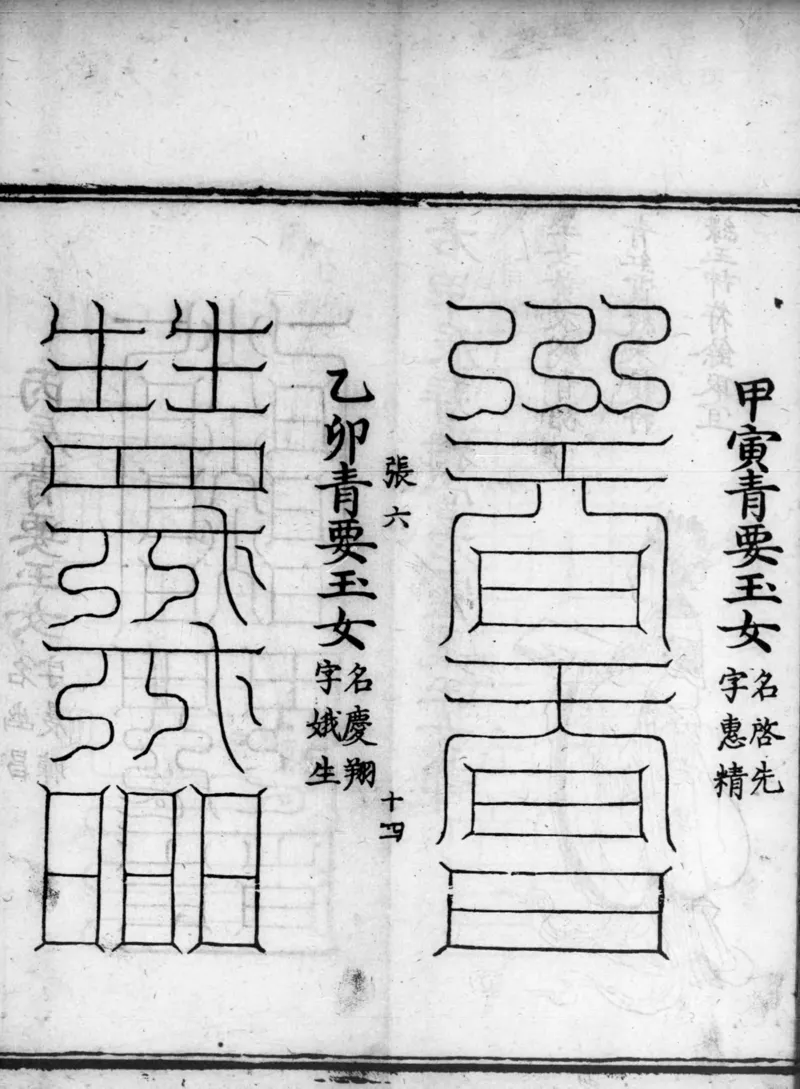 甲寅青要玉女
名啓先
字惠精
張六
十四
乙卯青要玉女
名慶翔
字娥生